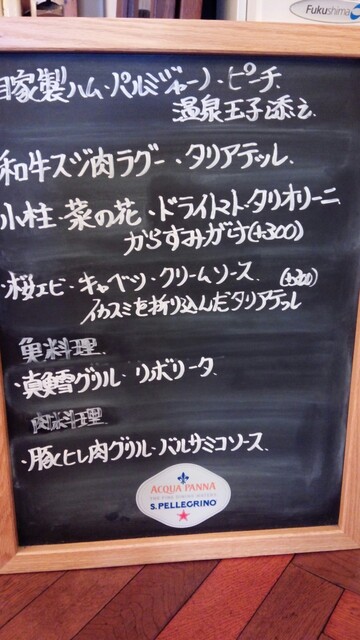 Fukushima
自家製ハム・パルミジャーノ・ピーチ
温泉玉子添え
和牛スジ肉ラグー、タリアテッレ
小柱・菜の花・ドライトマト・タリオリーニ
からすみがけ(+300)
・桜エビ・キャベツ・クリームソース (+300)
イカスミを折り込んだタリアテッレ
魚料理
・真鱈グリル・リボリータ
肉料理
・豚ヒレ肉グリル・バルサミコソース
ACQUA PANNA
THE FINE DINING WATERS
S.PELLEGRINO